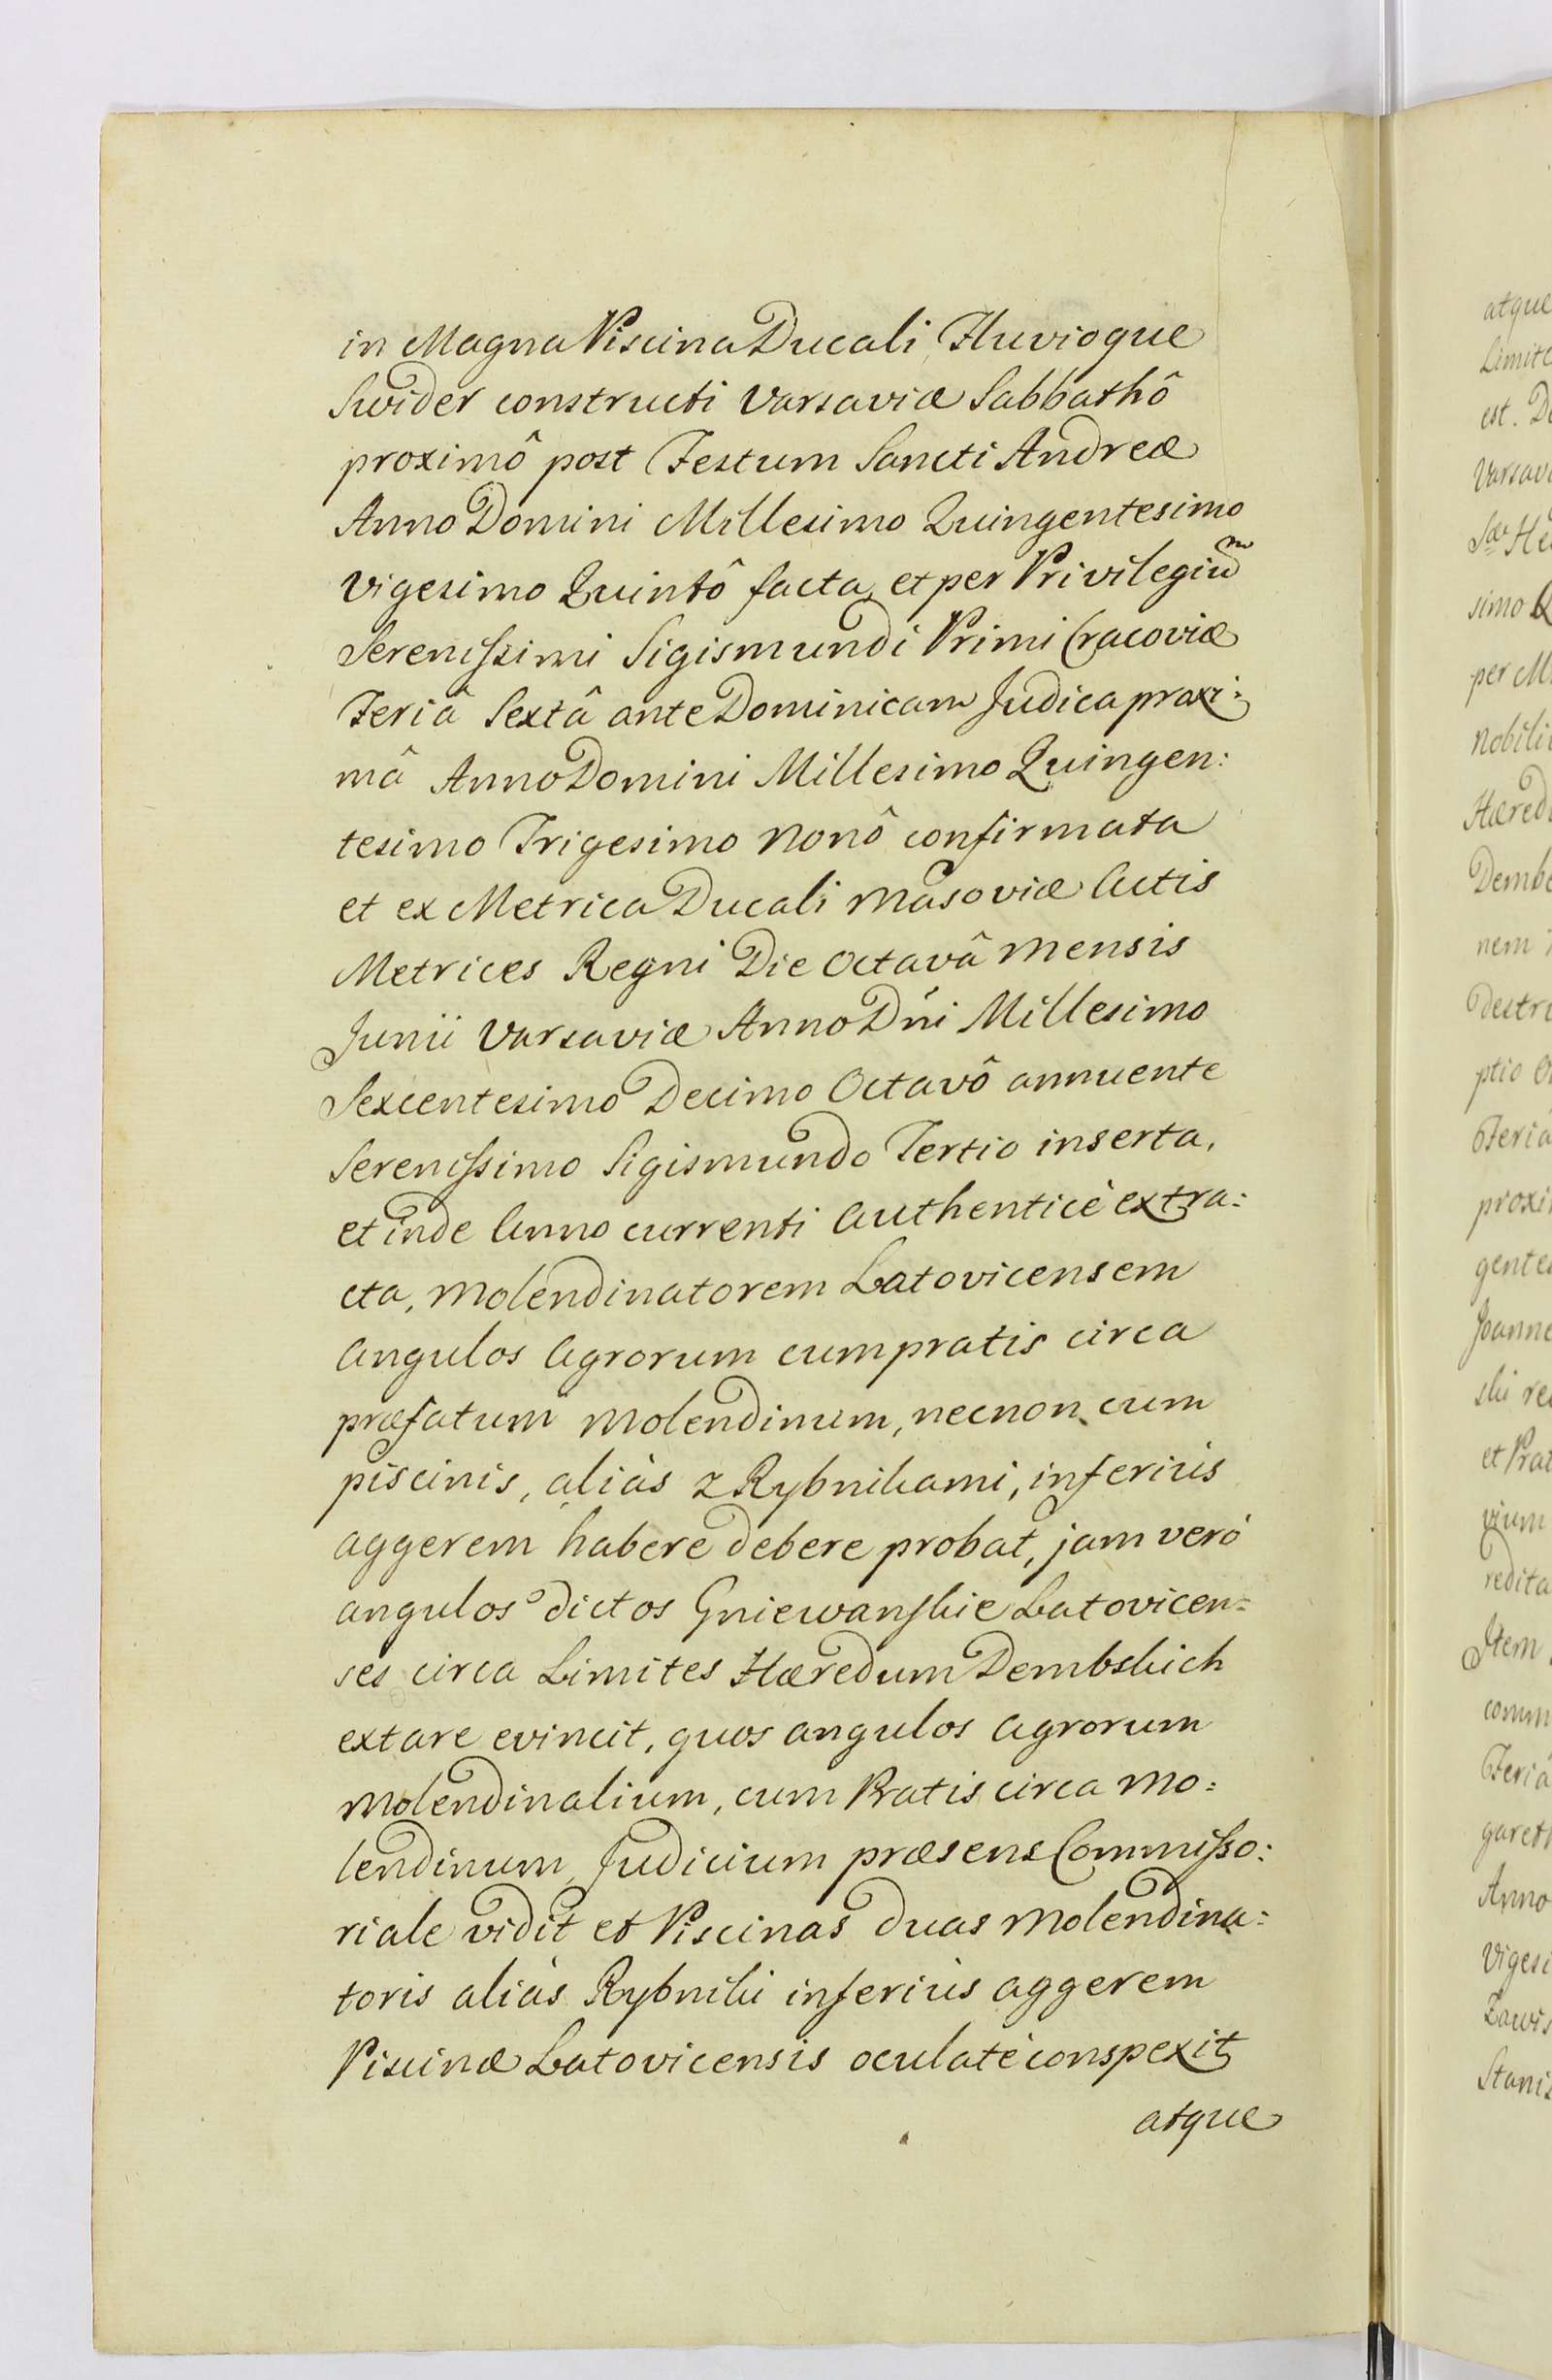 in Magna Piscina Ducali Fluvioque
Swider constructi Varsaviæ Sabbathô
proximô post Festum Sancti Andreæ
Anno Domini Millesimo Quingentesimo
Vigesimo Quintô facta, et per Privilegiũm
Serenissimi Sigismundi Primi Cracoviæ
Feriâ Sextâ ante Dominicam Judica proxi:
mâ Anno Domini Millesimo Quingen:
tesimo Trigesimo Nonô confirmata
et ex Metrica Ducali Masoviæ Actis
Metrices Regni Die Octavâ Mensis
Junii Varsaviæ Anno Dńi Millesimo
Sexcentesimo Decimo Octavô annuente
Serenissimo Sigismundo Tertio inserta,
et inde Anno currenti Authenticè extra:
cta, Molendinatorem Latovicensem
Angulos Agrorum cum pratis circa
præfatum Molendinum, necnon cum
piscinis, aliàs z Rybnikami, inferiùs
aggerem habere debere probat, jam verò
angulos dictos Gniewanskie Latovicen=
ses circa Limites Hæredum Dembskich
extare evincit, quos angulos Agrorum
Molendinalium, cum Pratis circa Mo=
lendinum, Judicium præsens Commisso:
riale vidit et Piscinas duas Molendina=
toris aliàs Rybniki inferiùs aggerem
Piscinæ Latovicensis oculatè conspexit
atque
atque
est.
simo
per
nem
Anno